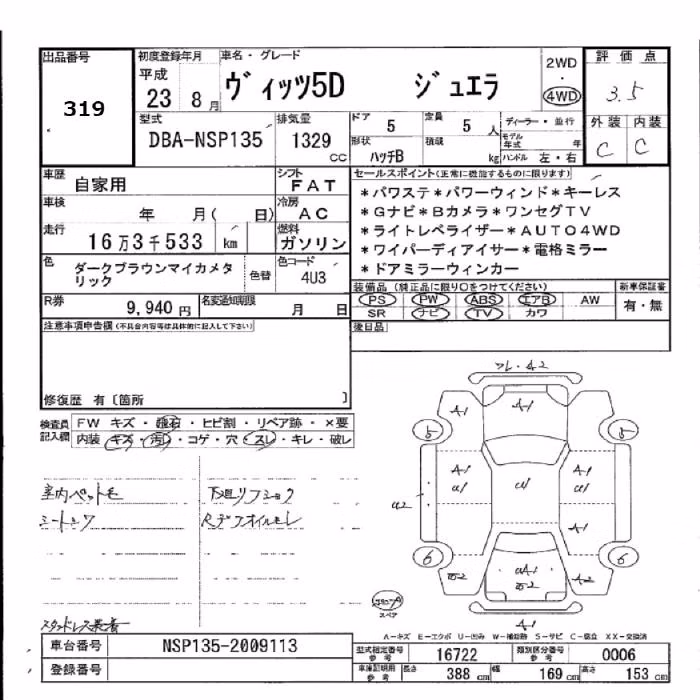 出品番号
319
初度登録年月
平成
23 8月
車名・グレード
ヴィッツ5D ジュエラ
2WD
・
4WD
評価点
3.5
外装 内装
C C
型式
DBA-NSP135
排気量
1329
CC
ドア
5
定員
5 人
形状
ハッチB
積載
kg
ディーラー・並行
モデル年式 年
ハンドル 左・右
車歴
自家用
シフト
FAT
車検
年 月( 日)
冷房
AC
走行
16万3千533 km
燃料
ガソリン
色
ダークブラウンマイカメタリック
色替
色コード
4U3
R券
9,940円
名変通知期限
月 日
セールスポイント(正常に機能するものに限ります)
*パワステ*パワーウィンド*キーレス
*Gナビ*Bカメラ*ワンセグTV
*ライトレベライザー*AUTO4WD
*ワイパーディアイサー*電格ミラー
*ドアミラーウィンカー
装備品(純正品に限り○をつけてください)
PS PW ABS エアB AW
SR ナビ TV カワ
新車保証書
有・無
後日品
注意事項申告欄(不具合内容等は具体的に記入して下さい)
修復歴 有〔箇所 〕
検査員記入欄
FW キズ・飛石・ヒビ割・リペア跡・×要
内装 キズ・汚レ・コゲ・穴・スレ・キレ・破レ
室内ペット毛
シートシワ
下廻リフショク
Rデフオイルモレ
スタッドレス装着
フレ・A2
A-1
A-1
A-1
5
5
A-1
U1
U1
A-1
U1
U2
A-1
6
6
A-2
A-1
スペア
A-キズ E-エクボ U-凹み W-補修跡 S-サビ C-腐食 XX-交換済
車台番号
NSP135-2009113
登録番号
型式指定番号
参考
16722
類別区分番号
参考
0006
車庫証明用
参考
長さ
388 cm
幅
169 cm
高さ
153 cm